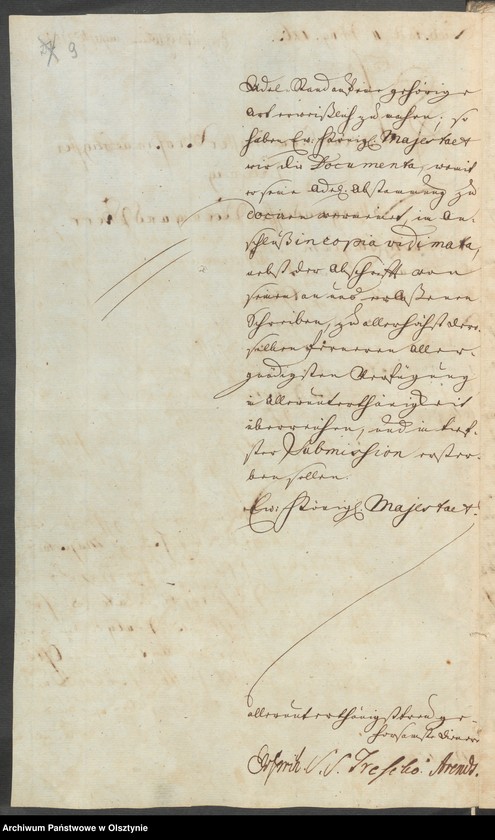 9
Adel. Stand auf eine gehörige
Art erweißlich zu machen; so
haben Ew: Königl. Majestaet
wir die Documenta, womit
er seine Adel. Abstammung zu
vermeinet, in An-
schluß in copia vidimata,
nebst der Abschrifft von
seinem an uns erlaßenen
Schreiben, zu allerhöchst dero-
selben ferneren Aller-
gnädigsten Verfügung
in Allerunterthänigkeit
überreichen, und in tief-
ster Submission erster-
ben sollen.
Ew: Königl. Majestaet
allerunterthänigst treu ge-
horsamste Diener
Tresckó. Arendt.
Archiwum Państwowe w Olsztynie